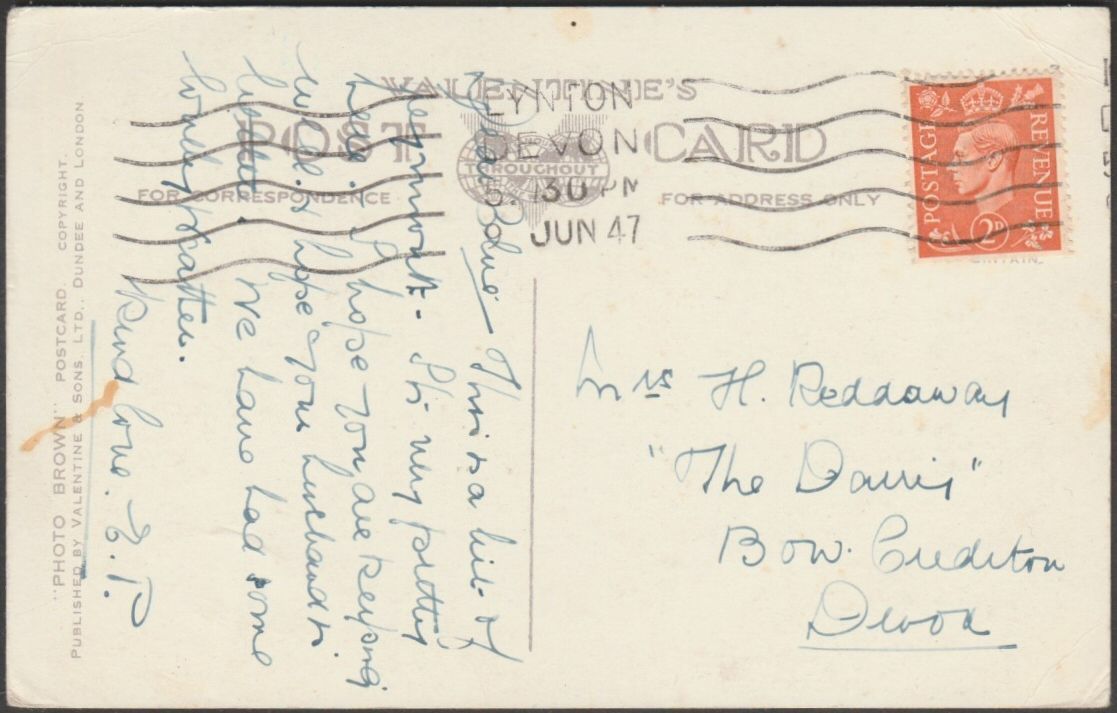 VALENTINE'S
POST CARD
THROUGHOUT
FOR CORRESPONDENCE
FOR ADDRESS ONLY
LYNTON
DEVON
5. 30 PM
9 JUN 47
POSTAGE
REVENUE
2D
"PHOTO BROWN" POSTCARD. COPYRIGHT.
PUBLISHED BY VALENTINE & SONS, LTD., DUNDEE AND LONDON
Dear — This is a bit of
— It's very pretty
here. I hope you are keeping
well. & hope your husband is
better. We have had some
lovely weather.
Kind love. E. P.
Mrs H. Reddaway
"The Dairy"
Bow. Crediton
Devon